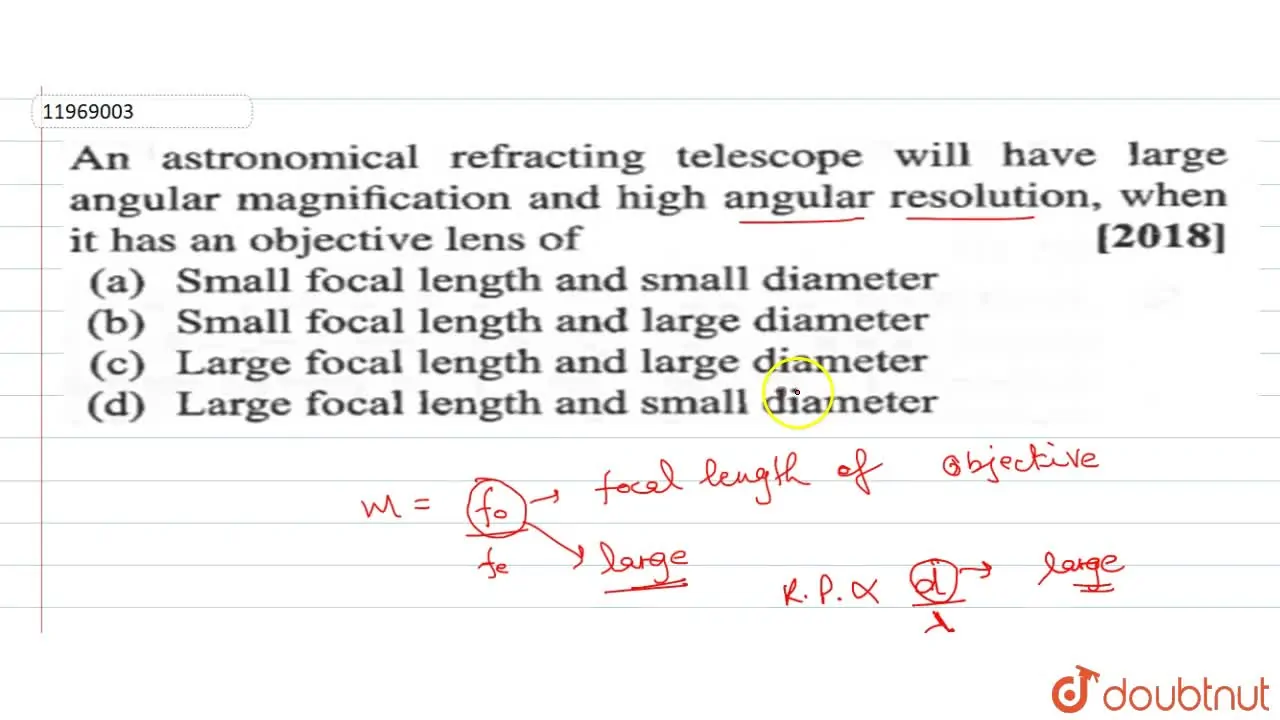 11969003
An astronomical refracting telescope will have large
angular magnification and high angular resolution, when
it has an objective lens of [2018]
(a) Small focal length and small diameter
(b) Small focal length and large diameter
(c) Large focal length and large diameter
(d) Large focal length and small diameter
m = fo/fe → focal length of objective
large
R.P. ∝ d/λ → large
doubtnut